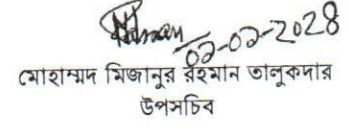 ০১-০২-2028
মোহাম্মদ মিজানুর রহমান তালুকদার
উপসচিব